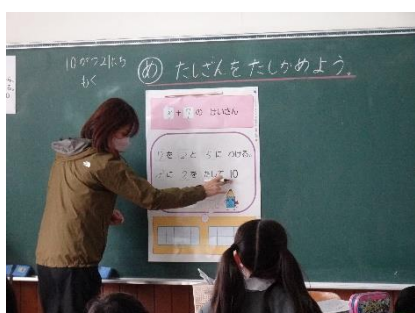 10がつ21にち
もく
め たしざんをたしかめよう。
+ の けいさん
を と に わける。
に を たして 10